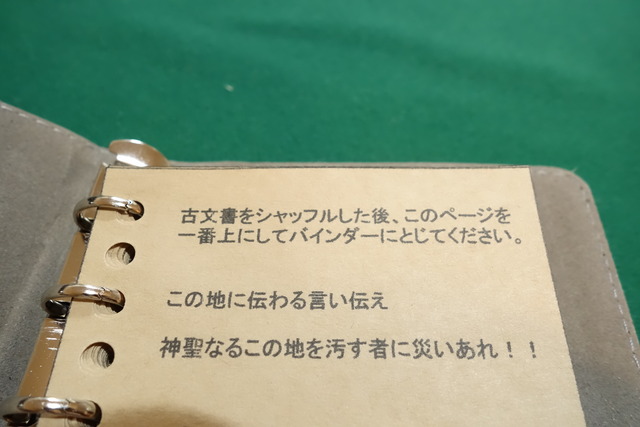 古文書をシャッフルした後、このページを
一番上にしてバインダーにとじてください。
この地に伝わる言い伝え
神聖なるこの地を汚す者に災いあれ！！